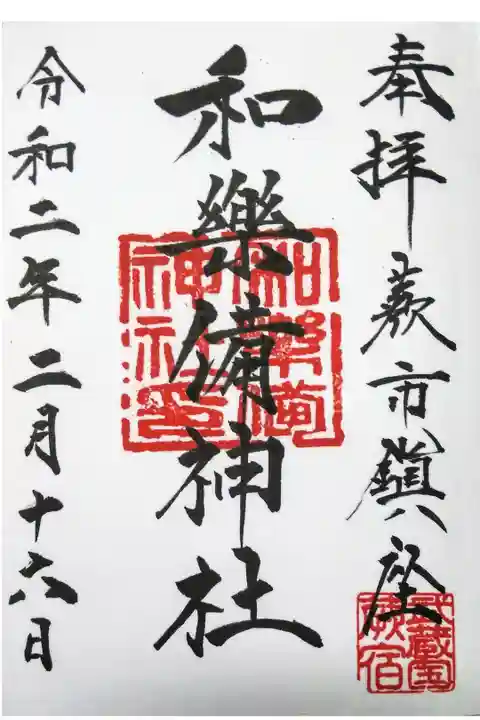 奉拝 蕨市鎮座
和樂備神社
和樂備神社印
武蔵國蕨宿
令和二年二月十六日